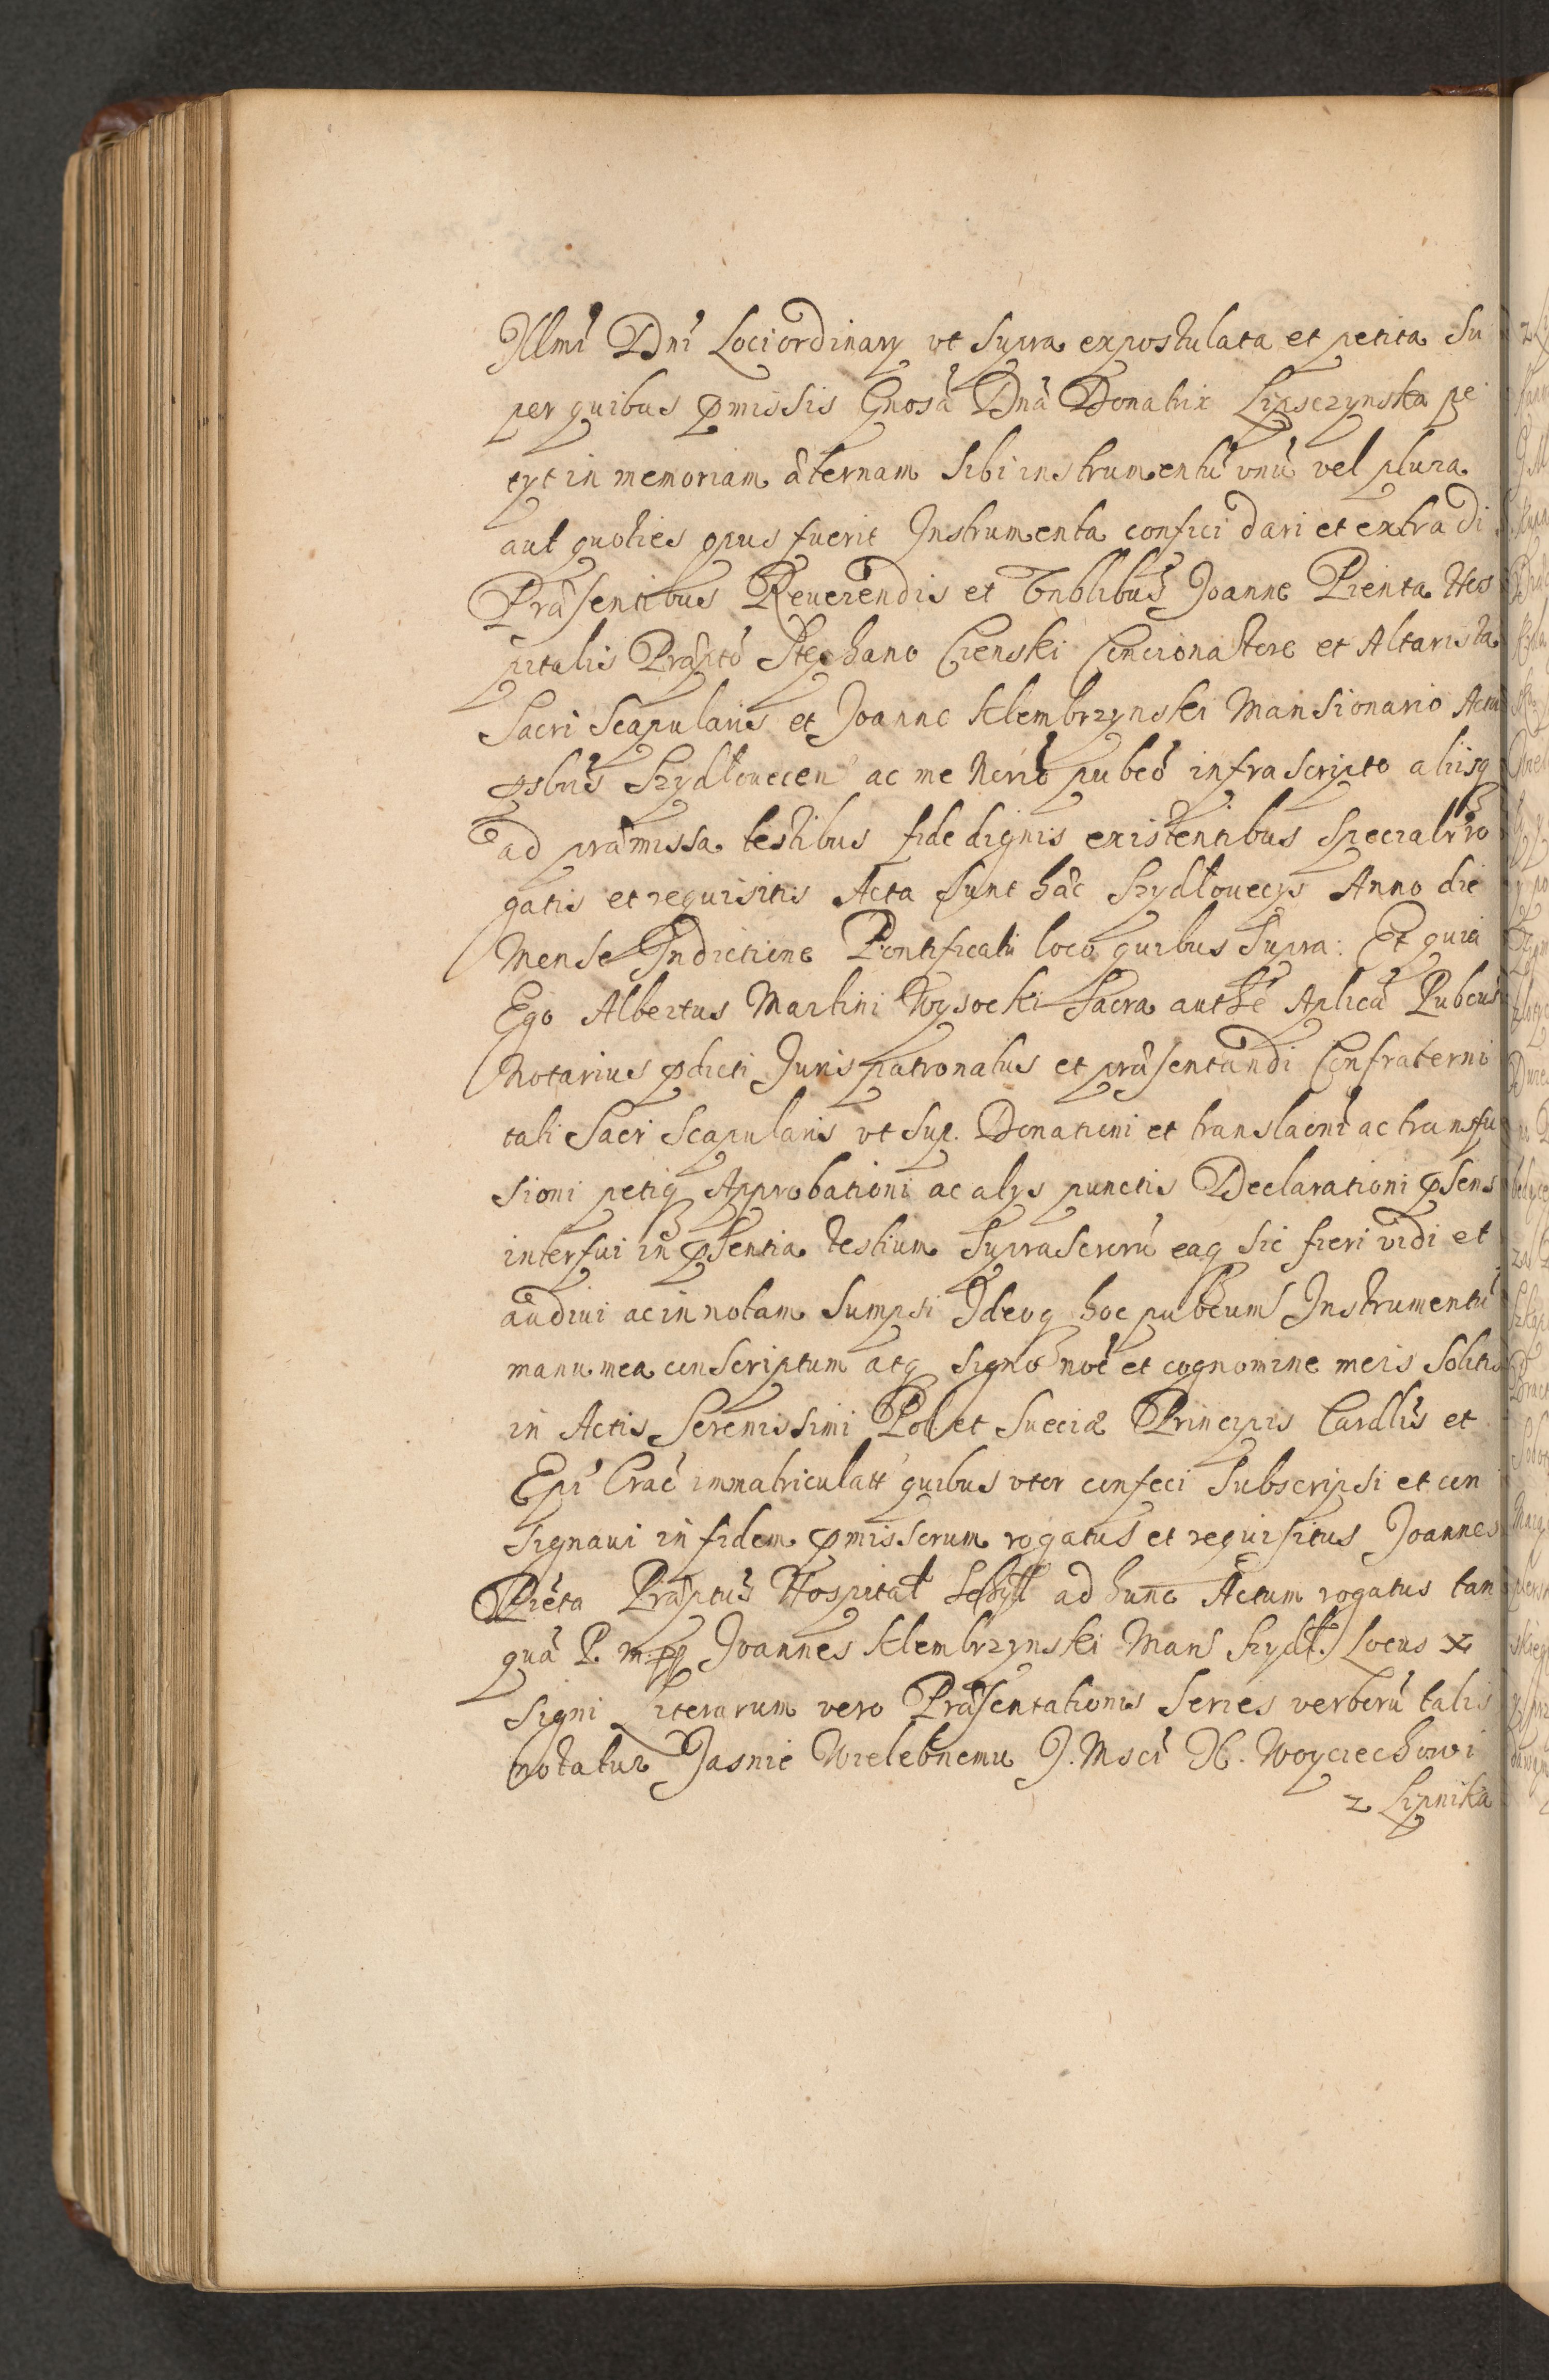 Illmi Dni Loci ordinarÿ vt supra expostulata et petita Su
per quibus pmissis Gnosa Dna Donatrix Lipsczynska pe
tyt in memoriam æternam sibi instrumentū vnū vel plura
aut quoties opus fuerit Instrumenta confici dari et extradi
Præsentibus Reuerendis et Vnblibus Joanne Pienta Hos
pitalis Præpto Stephano Cienski Concionatore et Altarista
Sacri Scapularis et Joanne Klembrzynski Mansionario
Szydłouecen ac me Nerio pubco infrascripto aliisq
ad præmissa testibus fide dignis existentibus specialr ro
gatis et requisitis Acta sunt hæc Szydłouecys Anno die
Mense Indictione Pontificatu loco quibus supra: Et quia
Ego Albertus Martini Wysocki Sacra authe Aplica Pubcus
Notarius pdicti Juris patronatus et præsentandi Confraterni
tati Sacri Scapularis vt sup. Donationi et translaoni ac transfu
sioni petiq Approbationi ac alys punctis Declarationi psens
interfui in psentia testium suprascrorū eaq sic fieri vidi et
audiui ac in notam sumpsi Ideoq hoc pubcum Instrumentū
manu mea conscriptum atq signo noe et cognomine meis solitis
in Actis Serenissimi Pol et Sueciæ Principis Cardlis et
Epi Crac immatriculatt quibus vtor confeci subscripsi et con
signaui in fidem pmissorum rogatus et requisitus Joannes
Pieta Præptus Hospital ad hunc Actum rogatus tan
quā P. mpp Joannes Klembrzynski Mans Szydł. Locus x
Signi Literarum vero Præsentationis series verborū talis
notatur Jasnie Wielebnemu J. Mści X. Woyciechowi
z Lipnika